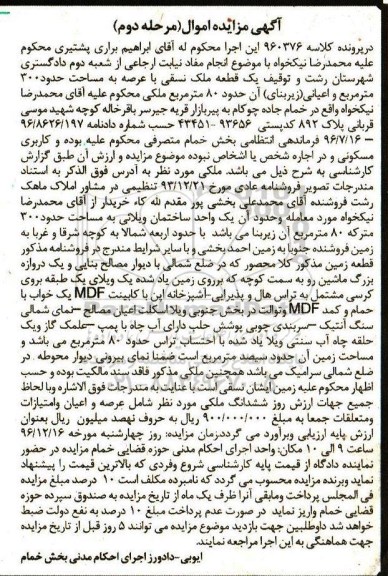 آگهی مزایده اموال(مرحله دوم)
درپرونده کلاسه ۹۶۰۳۷۶ این اجرا محکوم له آقای ابراهیم براری پشتیری محکوم
علیه محمدرضا نیکخواه با موضوع انجام مفاد نیابت ارجاعی از شعبه دوم دادگستری
شهرستان رشت و توقیف یک قطعه ملک نسقی با عرصه به مساحت حدود۳۰۰
مترمربع و اعیانی(زیربنای) آن حدود ۸۰ مترمربع ملکی محکوم علیه آقای محمدرضا
نیکخواه واقع در خمام جاده چوکام به پیربازار قریه جیرسر باقرخاله کوچه شهید موسی
قربانی پلاک ۸۹۲ کدپستی ۹۳۶۵۶ -۴۳۴۵۱ حسب شماره دادنامه ۹۶/۸۶۲۶/۱۹۷
– ۹۶/۷/۱۶ فرماندهی انتظامی بخش خمام متصرفی محکوم علیه بوده و کاربری
مسکونی و در اجاره شخص یا اشخاص نبوده موضوع مزایده و ارزش آن طبق گزارش
کارشناسی به شرح ذیل می باشد. ملکی مورد نظر به آدرس فوق الذکر به استناد
مندرجات تصویر فروشنامه عادی مورخ ۹۳/۱۲/۲۱ تنظیمی در مشاور املاک ماهک
رشت فروشنده آقای محمدعلی بخشی پور مقدم لله کاء خریدار از آقای محمدرضا
نیکخواه مورد معامله وحدود آن یک واحد ساختمان ویلائی به مساحت حدود۳۰۰
مترکه ۸۰ مترمربع آن زیربنا می باشد با حدود اربعه شمالا به کوچه شرقا و غربا به
زمین فروشنده جنوبا به زمین احمد بخشی و با سایر شرایط مندرج در فروشنامه مذکور
قطعه زمین مذکور کلا محصور که در ضلع شمالی با دیوار مصالح بنایی و یک دروازه
بزرگ ماشین رو به سمت کوچه که برروی زمین یاد شده یک ویلای یک طبقه بروی
کرسی مشتمل به تراس هال و پذیرایی –آشپزخانه اپن با کابینت MDF یک خواب با
حمام و کمد MDF وتوالت در بخش جنوبی ویلا اسکلت اعیان مصالح –نمای شمالی
سنگ آنتیک –سربندی چوبی پوشش حلب دارای آب چاه با پمپ –علمک گاز ویک
حلقه چاه آب سنتی ویلا یاد شده با احتساب تراس حدود ۸۰ مترمربع می باشد و
مساحت زمین آن حدود سیصد مترمربع است ضمنا نمای بیرونی دیوار محوطه در
ضلع شمالی سرامیک می باشد همچنین ملکی مذکور فاقد سند مالکیت بوده و حسب
اظهار محکوم علیه زمین ایشان نسق است. با عنایت به مندرجات فوق الاشاره وبا لحاظ
جمیع جهات ارزش روز ششدانگ ملکی مورد نظر شامل عرصه و اعیان وامتیازات
ومتعلقات جمعا به مبلغ ۹۰۰/۰۰۰/۰۰۰ ریال به حروف نهصد میلیون ریال بعنوان
ارزش پایه ارزیابی وبرآورد می گردد.زمان مزایده: روز چهارشنبه مورخه ۹۶/۱۲/۱۶
ساعت ۹ الی ۱۰ مکان: واحد اجرای احکام مدنی حوزه قضایی خمام مزایده در حضور
نماینده دادگاه از قیمت پایه کارشناسی شروع وفردی که بالاترین قیمت را پیشنهاد
نماید وبرنده مزایده محسوب می گردد که نامبرده مکلف است ۱۰ درصد مبلغ مزایده
فی المجلس پرداخت ومابقی آنرا ظرف یک ماه از تاریخ مزایده به صندوق سپرده حوزه
قضایی خمام واریز نماید در صورت عدم پرداخت مبلغ ۱۰ درصد به نفع دولت ضبط
خواهد شد داوطلبین جهت بازدید موضوع مزایده می توانند ۵ روز قبل از تاریخ مزایده
جهت هماهنگی به این اجرا مراجعه نمایند.
ایوبی–دادورز اجرای احکام مدنی بخش خمام